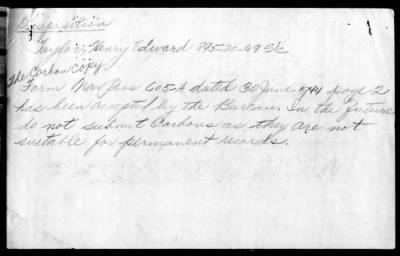 Disposition
Taylor, Henry Edward 895-20-69 S1c
The Carbon Copy
Form Nav Pers 605-A dated 30 June 1944 page 2
has been accepted by the Bureau. In the future
do not submit Carbons as they are not
suitable for permanent records.